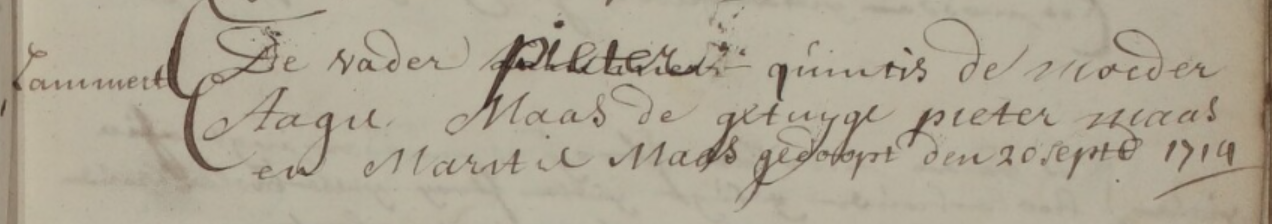 Lammert
De vader pieter quintis de moeder
Aagie Maas de getuyge pieter maas
en Maritie Maas gedoopt den 20 septb 1714